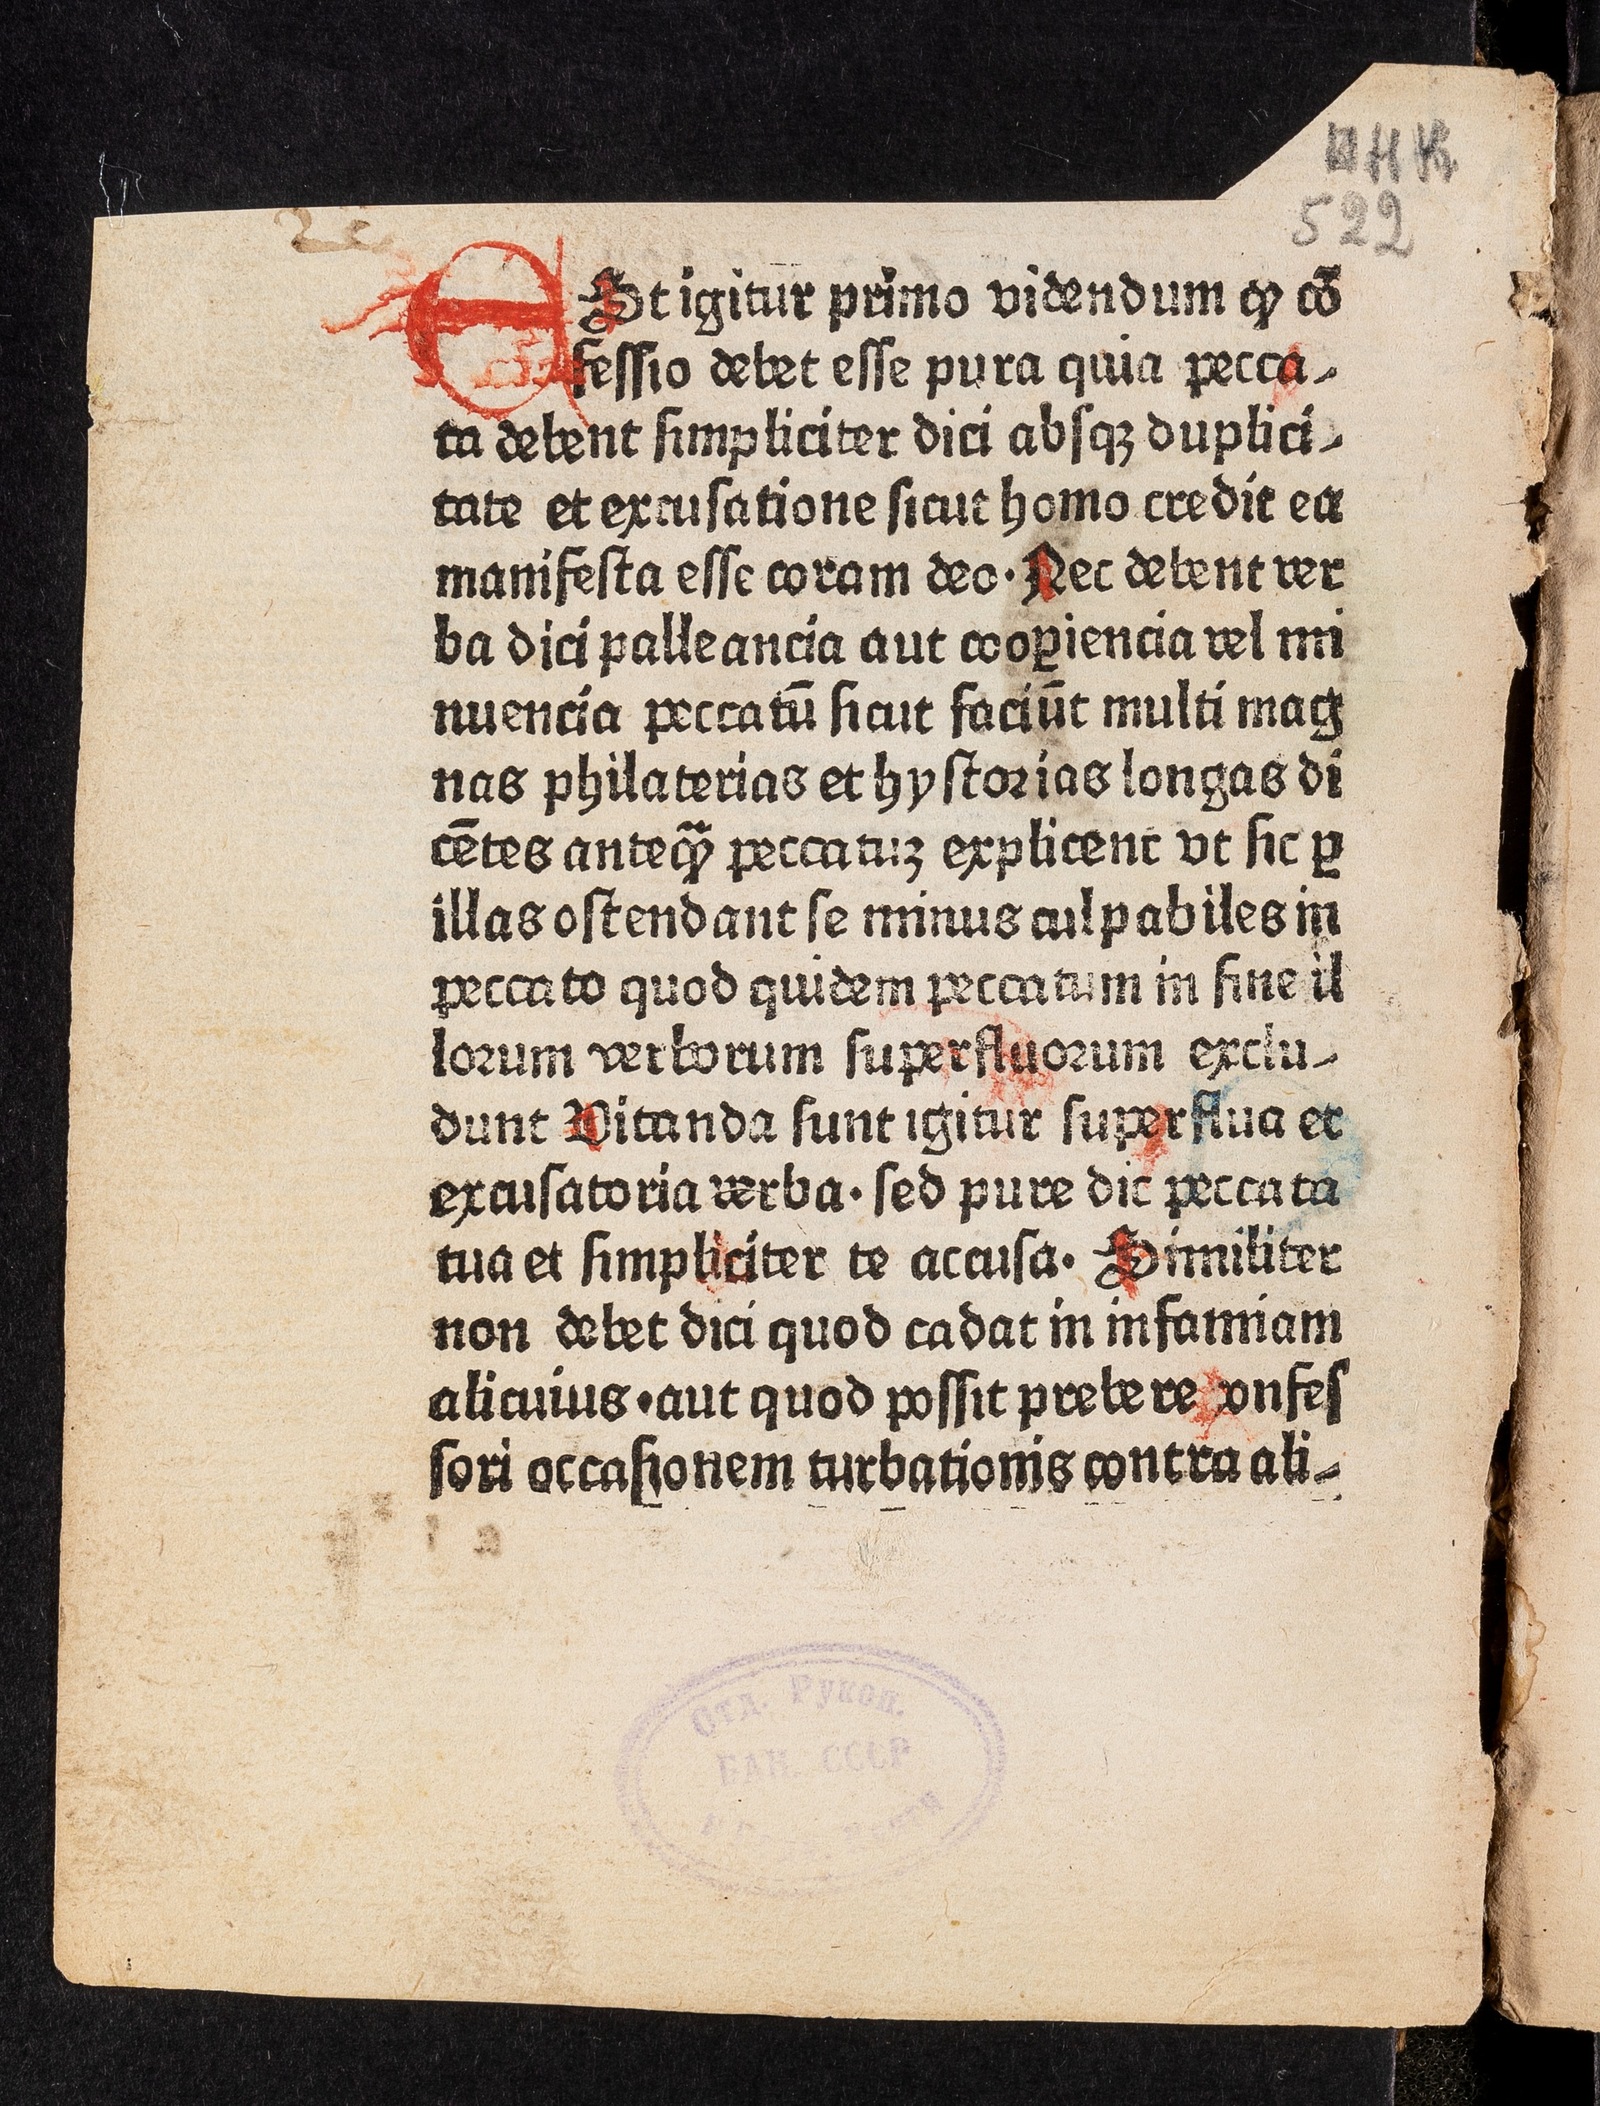 ИНК
522
ESt igitur primo videndum ꝙ cō
fessio debet esse pura quia pecca-
ta debent simpliciter dici absqꝫ duplici-
tate et excusatione sicut homo credit ea
manifesta esse coram deo· Nec debent ver
ba dici palleancia aut coopiencia vel mi
nuencia peccatū sicut faciūt multi mag
nas philaterias et hystorias longas di
cētes anteꝙ̄ peccatuꝫ explicent vt sic ꝑ
illas ostendant se minus culpabiles in
peccato quod quidem peccatum in fine il
lorum verborum superfluorum exclu-
dunt Vitanda sunt igitur superflua et
excusatoria verba· sed pure dic peccata
tua et simpliciter te accusa· Similiter
non debet dici quod cadat in infamiam
alicuius·aut quod possit prebere confes
sori occasionem turbationis contra ali-
Отд. Рукоп.
БАН. СССР